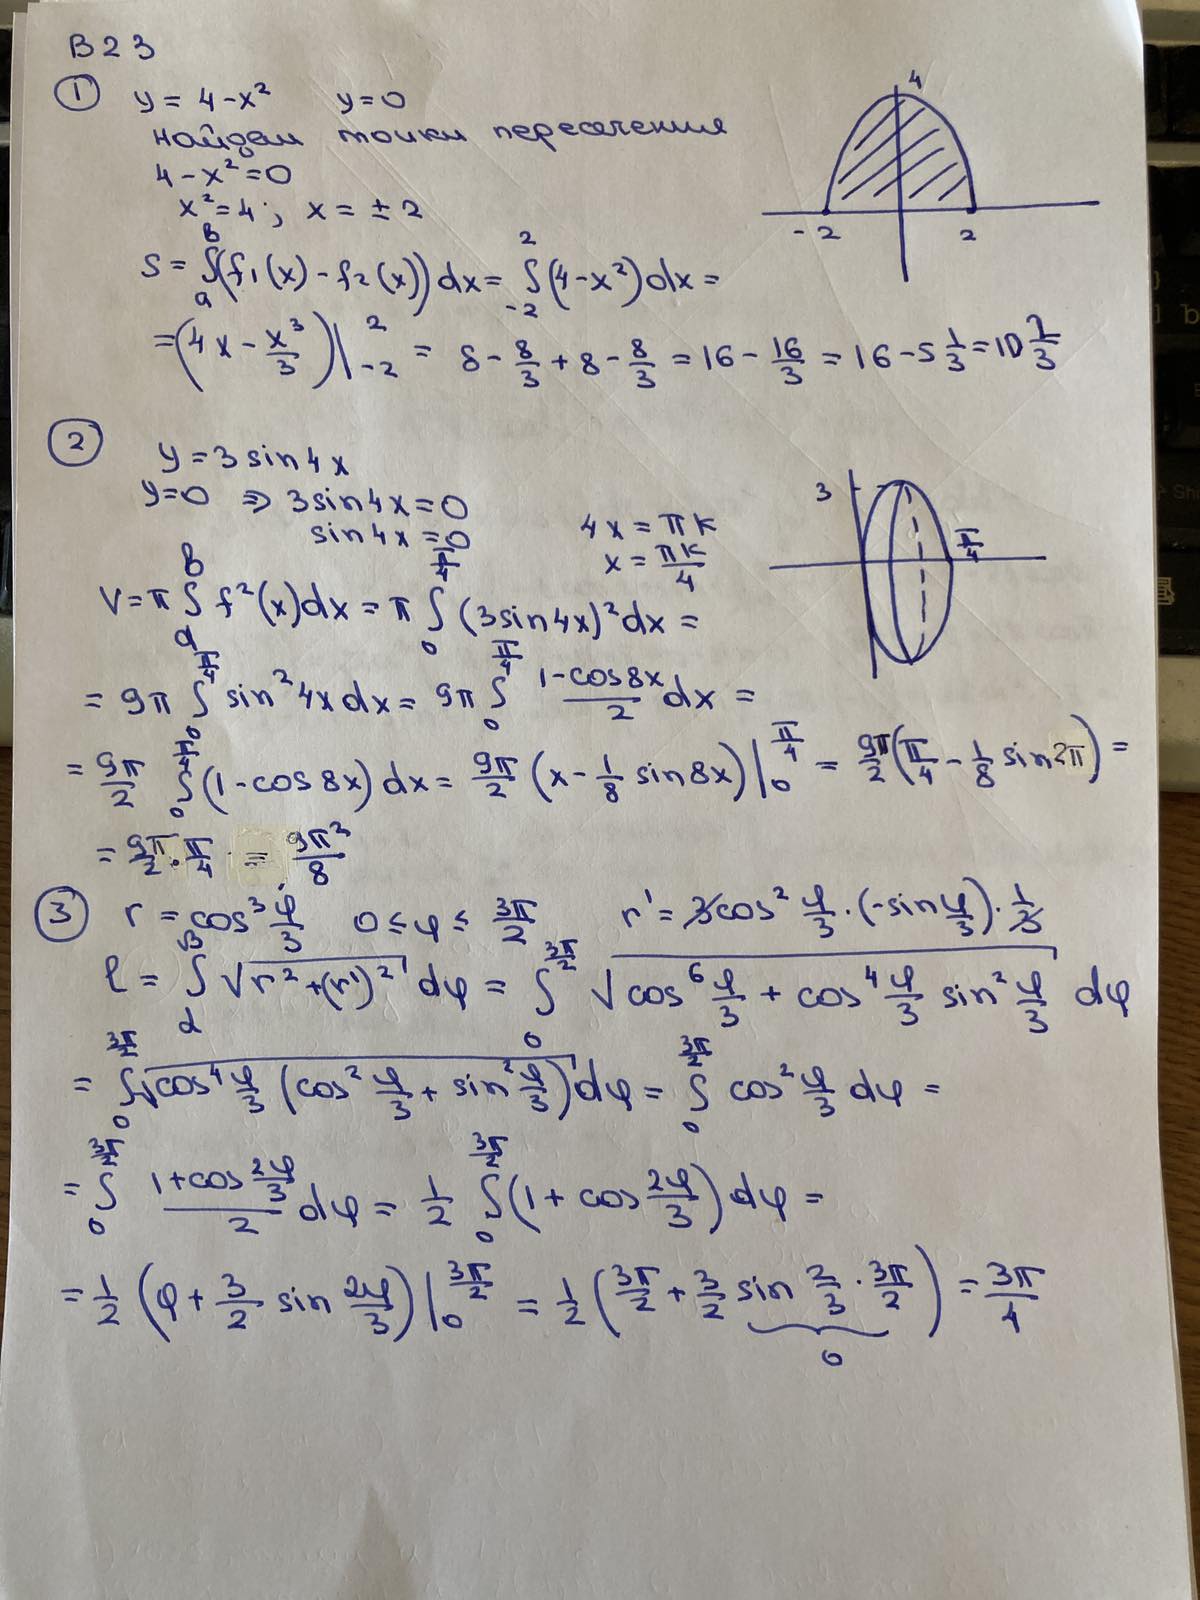 В23
① y = 4 - x² y = 0
найдем точки пересечения
4 - x² = 0
x² = 4 ; x = ± 2
S = ∫ₐᵇ (f₁(x) - f₂(x)) dx = ∫₋₂² (4 - x²) dx =
= (4x - x³/3) |₋₂² = 8 - 8/3 + 8 - 8/3 = 16 - 16/3 = 16 - 5 1/3 = 10 2/3
4
-2 2
② y = 3 sin 4x
y = 0 ⇒ 3 sin 4x = 0
sin 4x = 0 4x = πk
x = πk/4
3
π/4
V = π ∫ₐᵇ f²(x) dx = π ∫₀^(π/4) (3 sin 4x)² dx =
= 9π ∫₀^(π/4) sin² 4x dx = 9π ∫₀^(π/4) (1 - cos 8x)/2 dx =
= 9π/2 ∫₀^(π/4) (1 - cos 8x) dx = 9π/2 (x - 1/8 sin 8x) |₀^(π/4) = 9π/2 (π/4 - 1/8 sin 2π) =
= 9π/2 · π/4 = 9π²/8
③ r = cos³ φ/3 0 ≤ φ ≤ 3π/2 r' = 3 cos² φ/3 · (-sin φ/3) · 1/3
l = ∫_α^β √(r² + (r')²) dφ = ∫₀^(3π/2) √(cos⁶ φ/3 + cos⁴ φ/3 sin² φ/3) dφ
= ∫₀^(3π/2) √(cos⁴ φ/3 (cos² φ/3 + sin² φ/3)) dφ = ∫₀^(3π/2) cos² φ/3 dφ =
= ∫₀^(3π/2) (1 + cos 2φ/3)/2 dφ = 1/2 ∫₀^(3π/2) (1 + cos 2φ/3) dφ =
= 1/2 (φ + 3/2 sin 2φ/3) |₀^(3π/2) = 1/2 (3π/2 + 3/2 sin 2/3 · 3π/2) = 3π/4
0